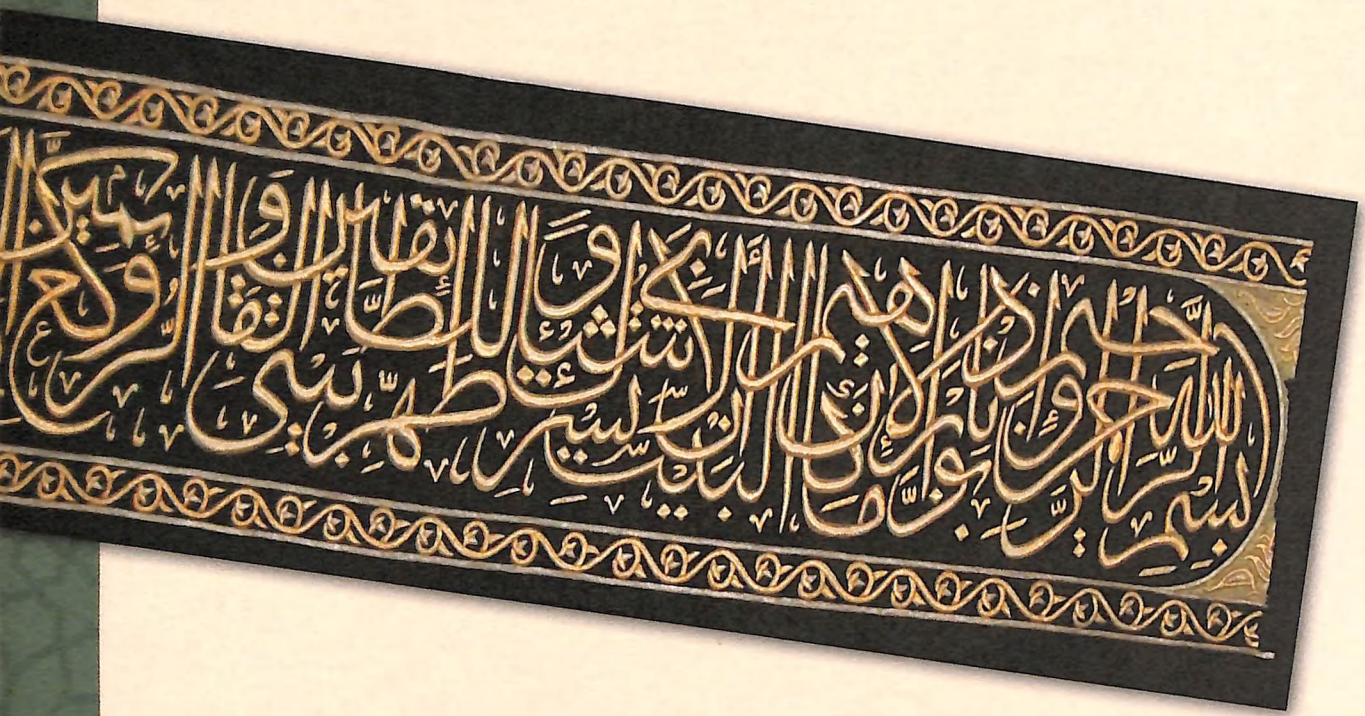 بِسْمِ اللَّهِ الرَّحْمَٰنِ الرَّحِيمِ وَإِذْ بَوَّأْنَا لِإِبْرَاهِيمَ مَكَانَ الْبَيْتِ أَنْ لَا تُشْرِكْ بِي شَيْئًا وَطَهِّرْ بَيْتِيَ لِلطَّائِفِينَ وَالْقَائِمِينَ وَالرُّكَّعِ